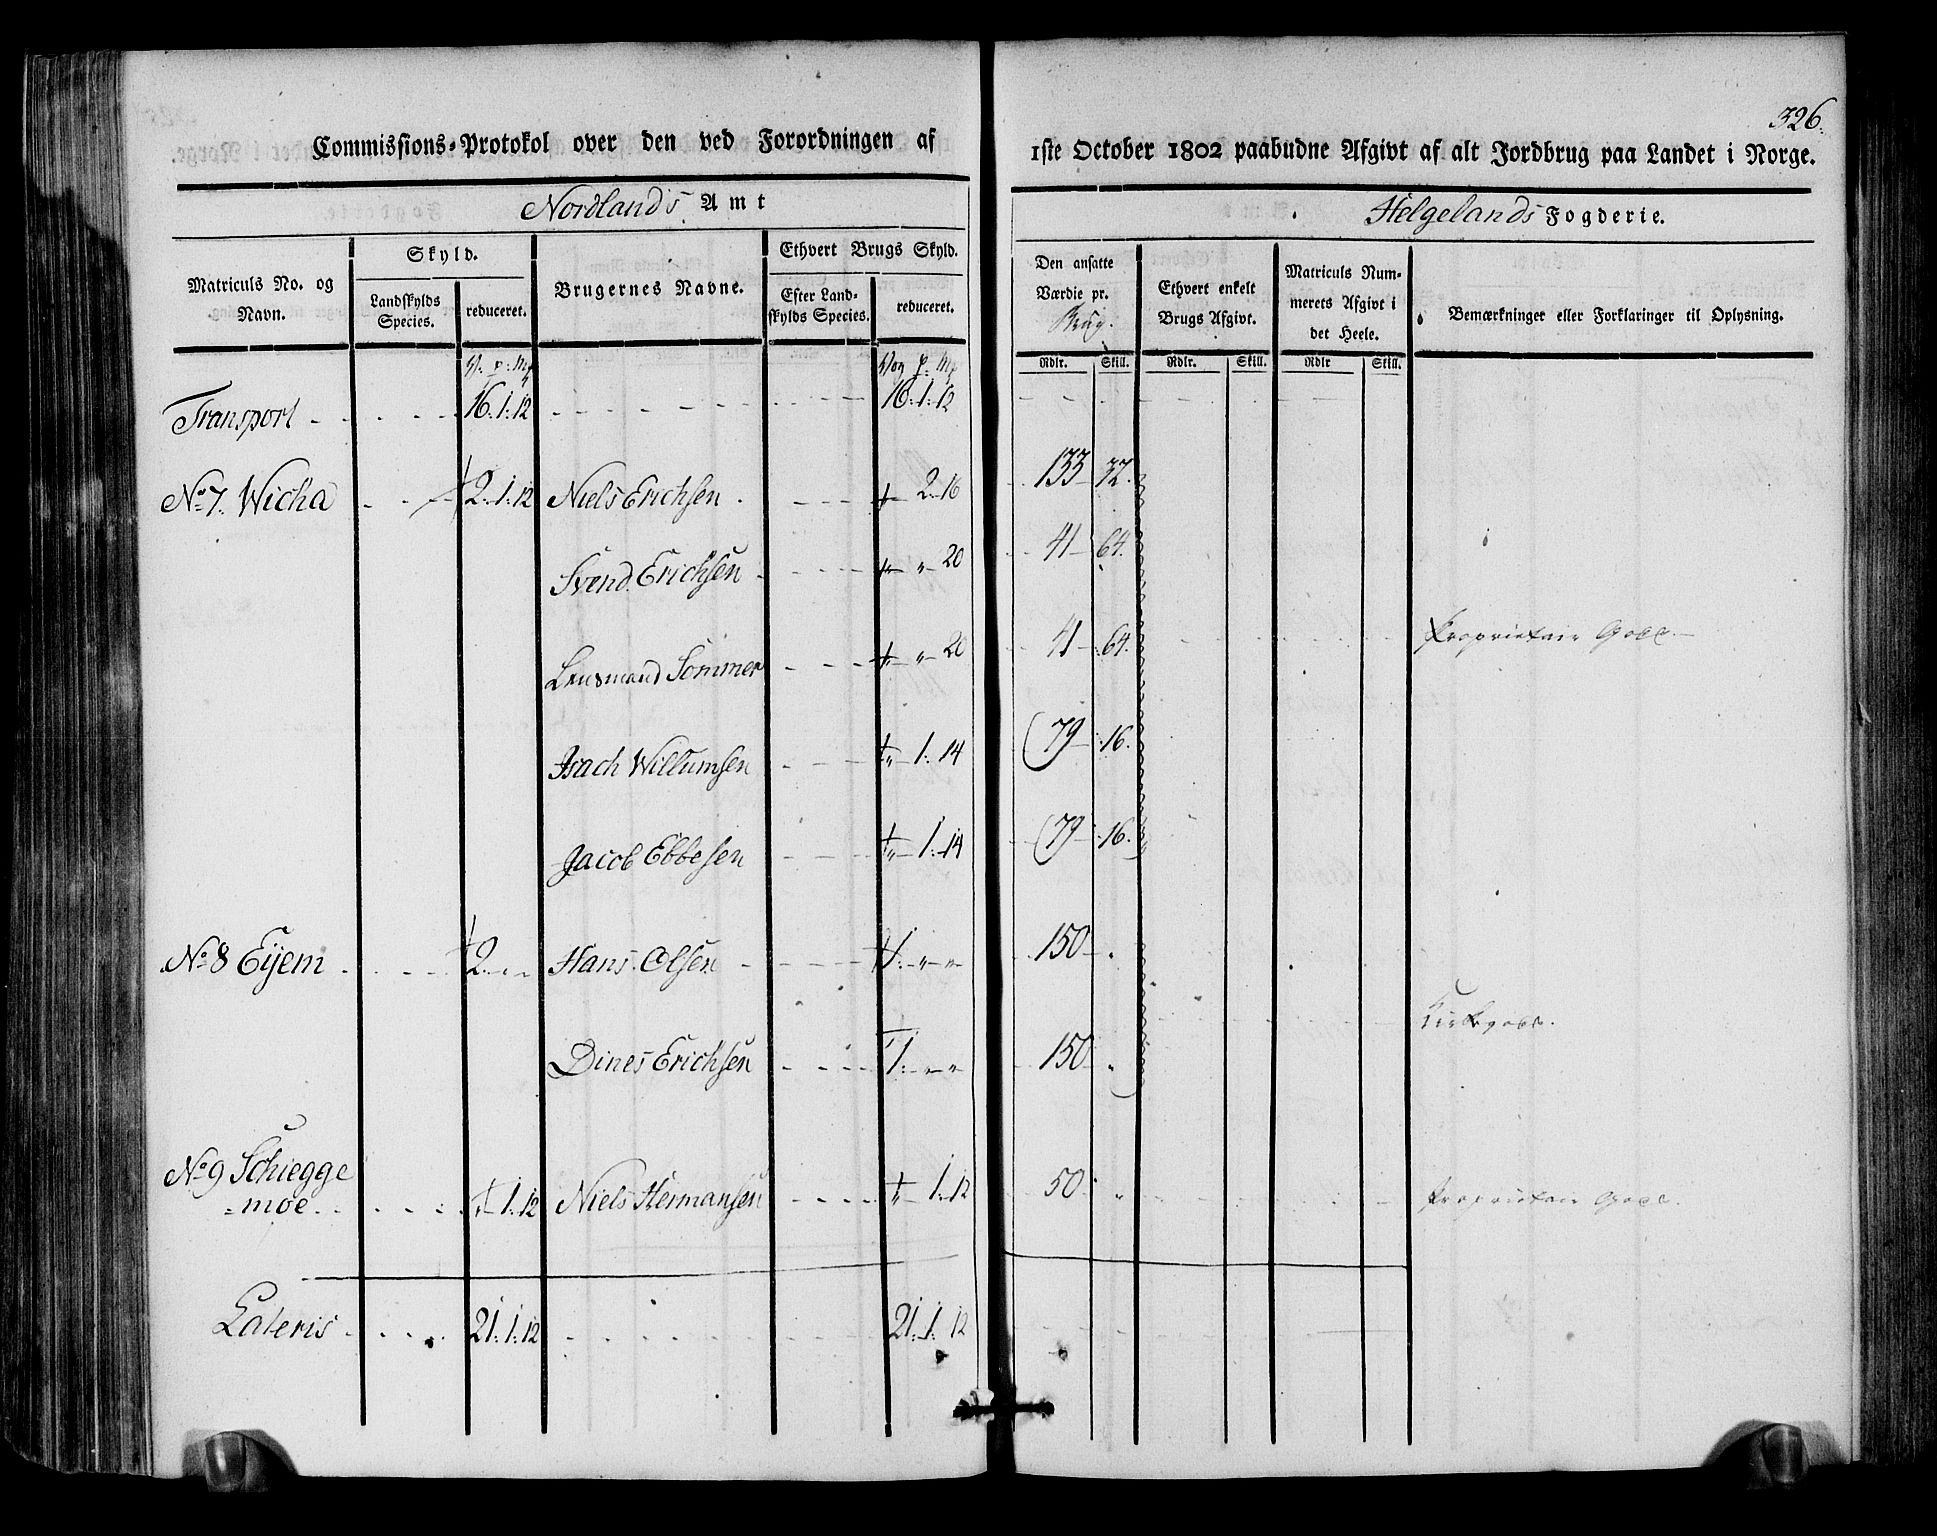 326.
Commissions-Protokol over den ved Forordningen af 1ste October 1802 paabudne Afgivt af alt Jordbrug paa Landet i Norge.
Nordlands Amt Helgelands Fogderie.
Matriculs No. og Navn.
Skyld.
Landskylds Species.
reduceret.
Brugernes Navne.
Ethvert Brugs Skyld.
Efter Landskylds Species.
reduceret.
Den ansatte Værdie pr. Brug.
Ethvert enkelt Brugs Afgivt.
Matriculs Nummerets Afgivt i det Heele.
Bemærkninger eller Forklaringer til Oplysning.
V. P: Mk Vog P. Mk Rdlr. Skill. Rdlr. Skill. Rdlr Skill.
Transport 16. 1: 12 16. 1. 12
No 7. Wicha 2. 1. 12 Niels Erichsen 2. 16 133 32.
Svend Erichsen " 20 41 64.
Lensmand Sommer " 20 41 64. Proprietair Gods.
Isach Willumsen " 1. 14 79 16.
Jacob Ebbesen " 1. 14 79 16.
No 8 Eijem 2. " " Hans Olsen 1. " " 150 "
Dines Erichsen 1. " " 150 " Kirkegods.
No 9 Schiegge
=moe. " 1. 12 Niels Hermansen " 1. 12 50 " Proprietair Gods.
Lateris 21. 1. 12 21. 1. 12